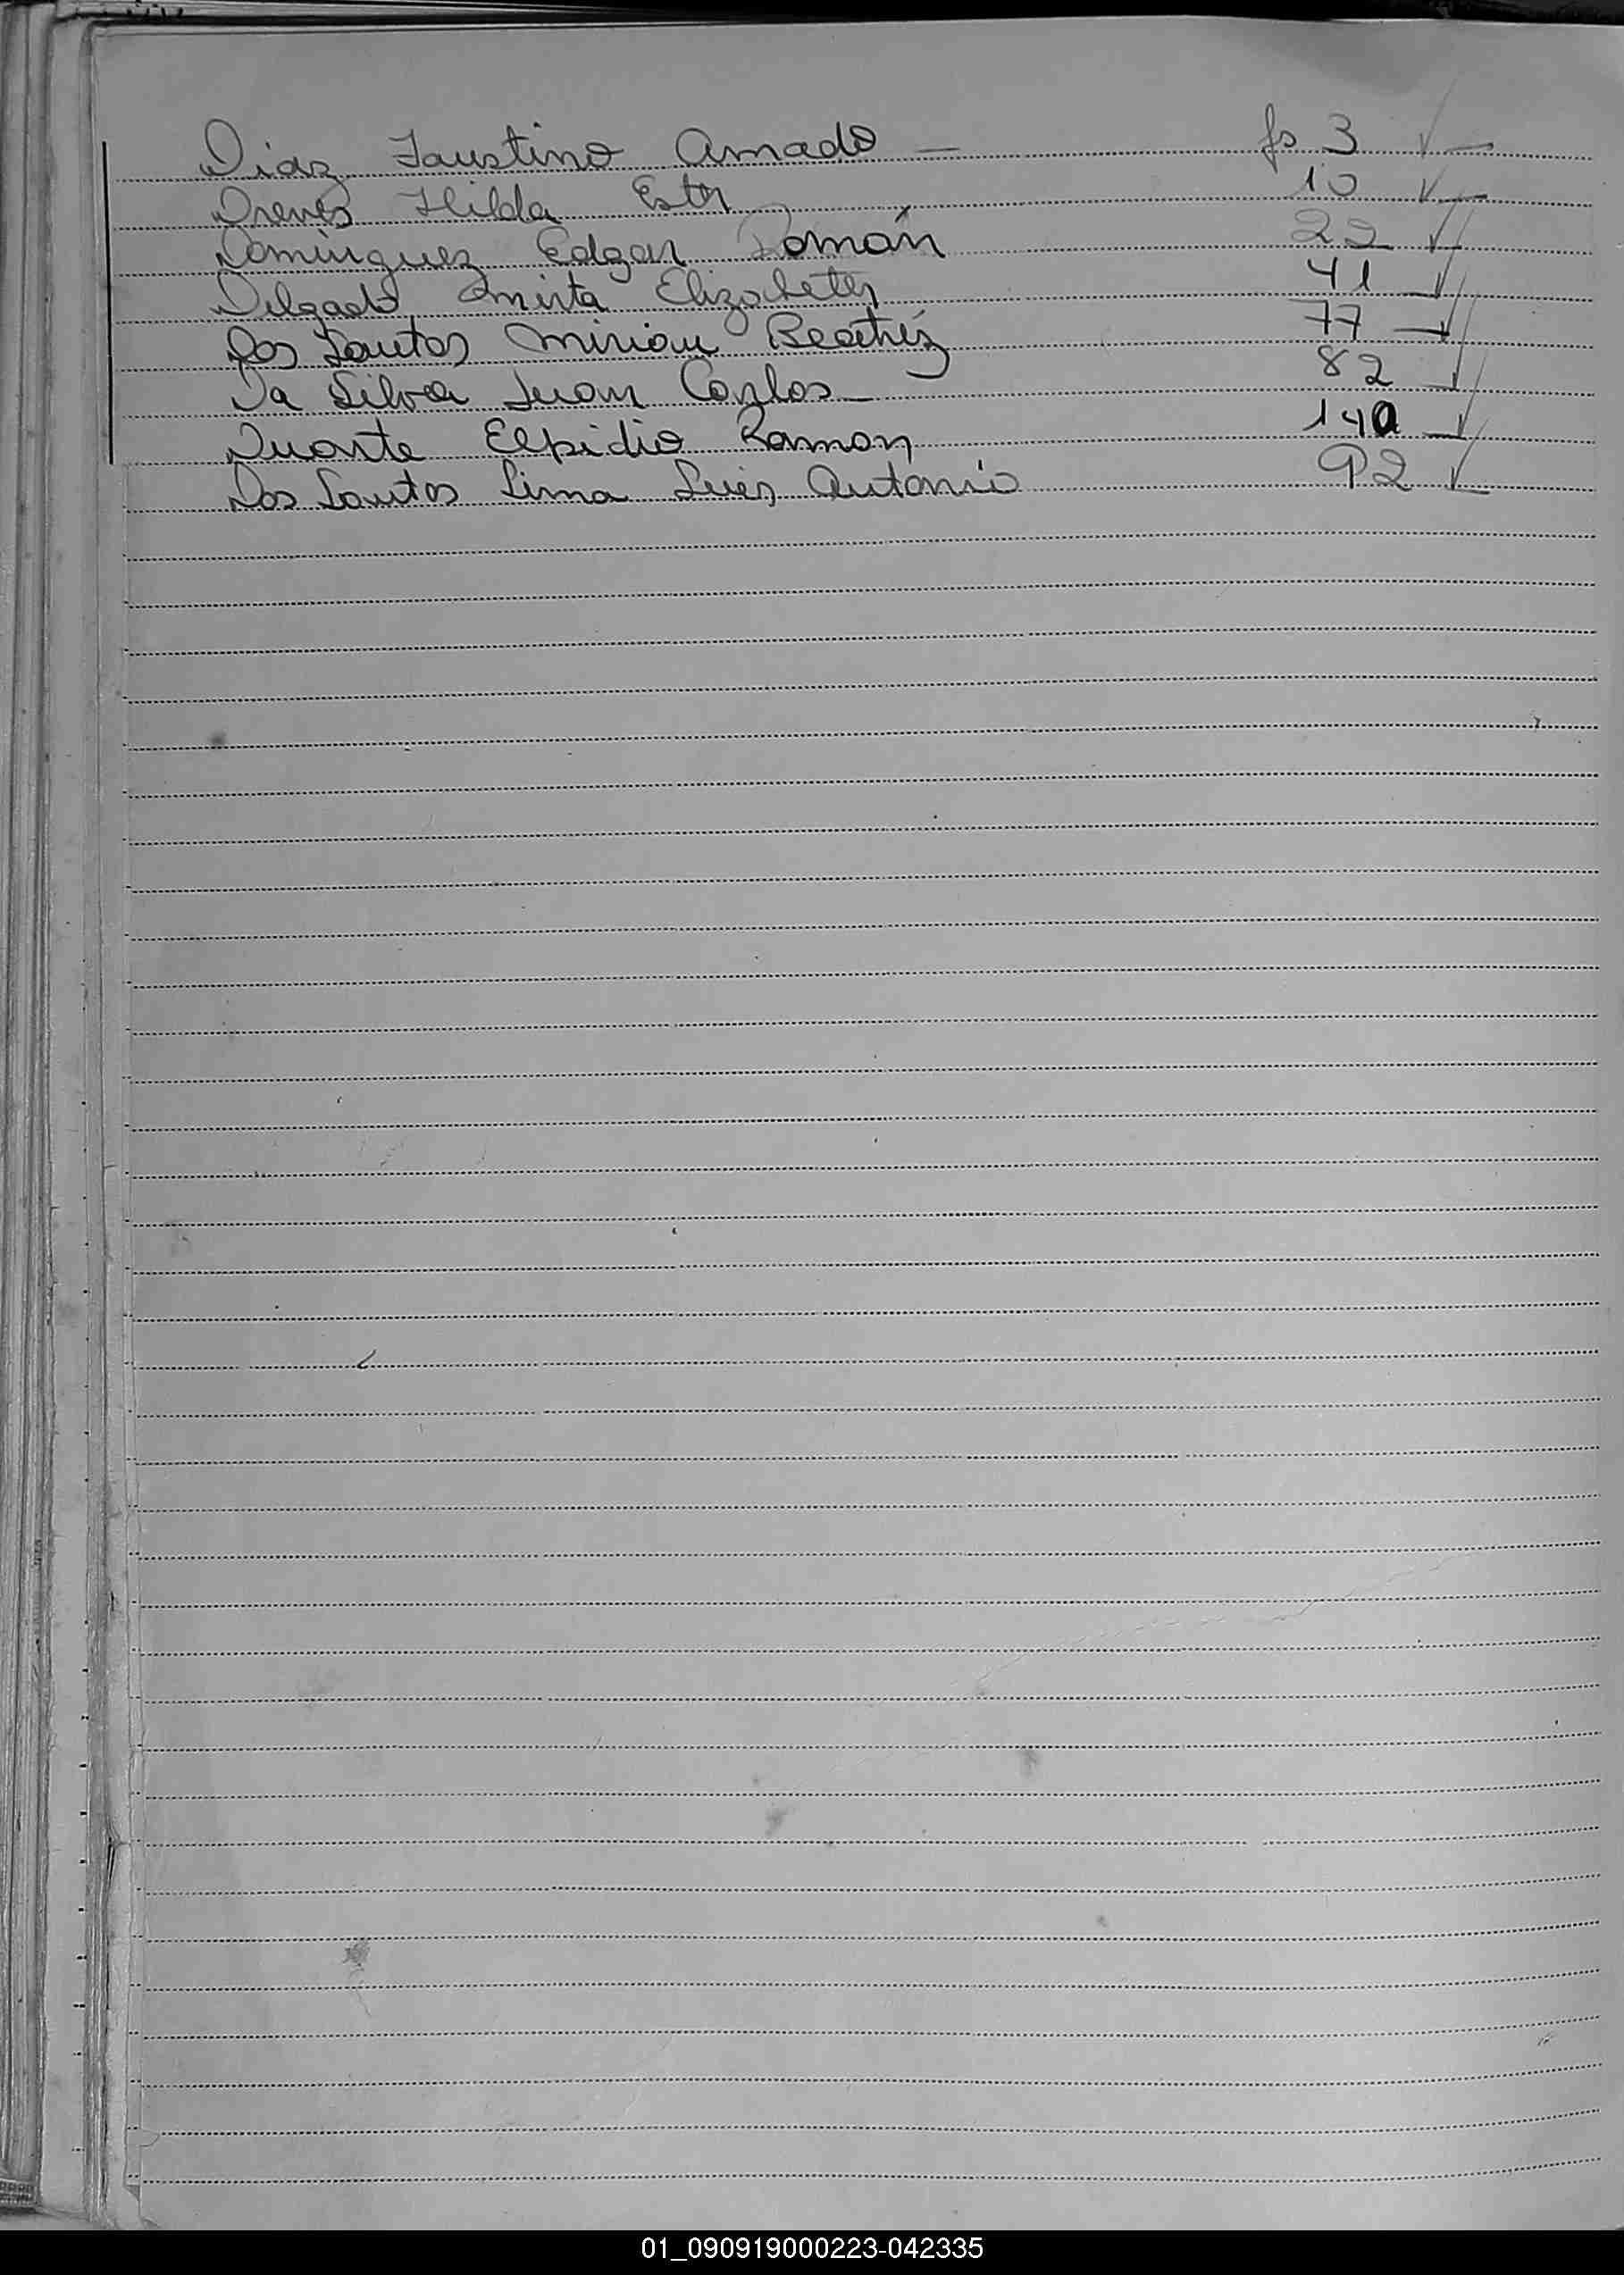 Diaz Faustino Amado — fs 3
Dreves Hilda Ester 10
Domínguez Edgar Román 22
Delgado Mirta Elizabeter 41
Dos Santos Mirian Beatríz 77
Da Silva Juan Carlos — 82
Duarte Elpidio Ramon 140
Dos Santos Lima Luis Antonio 92
01_090919000223-042335